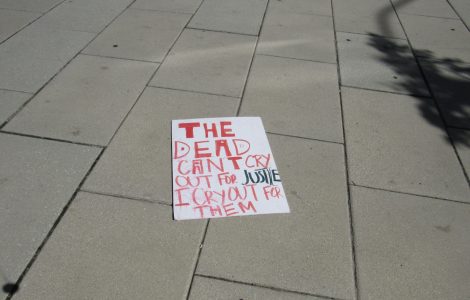 THE
DEAD
CAN'T CRY
OUT FOR JUSTICE
I CRY OUT FOR
THEM